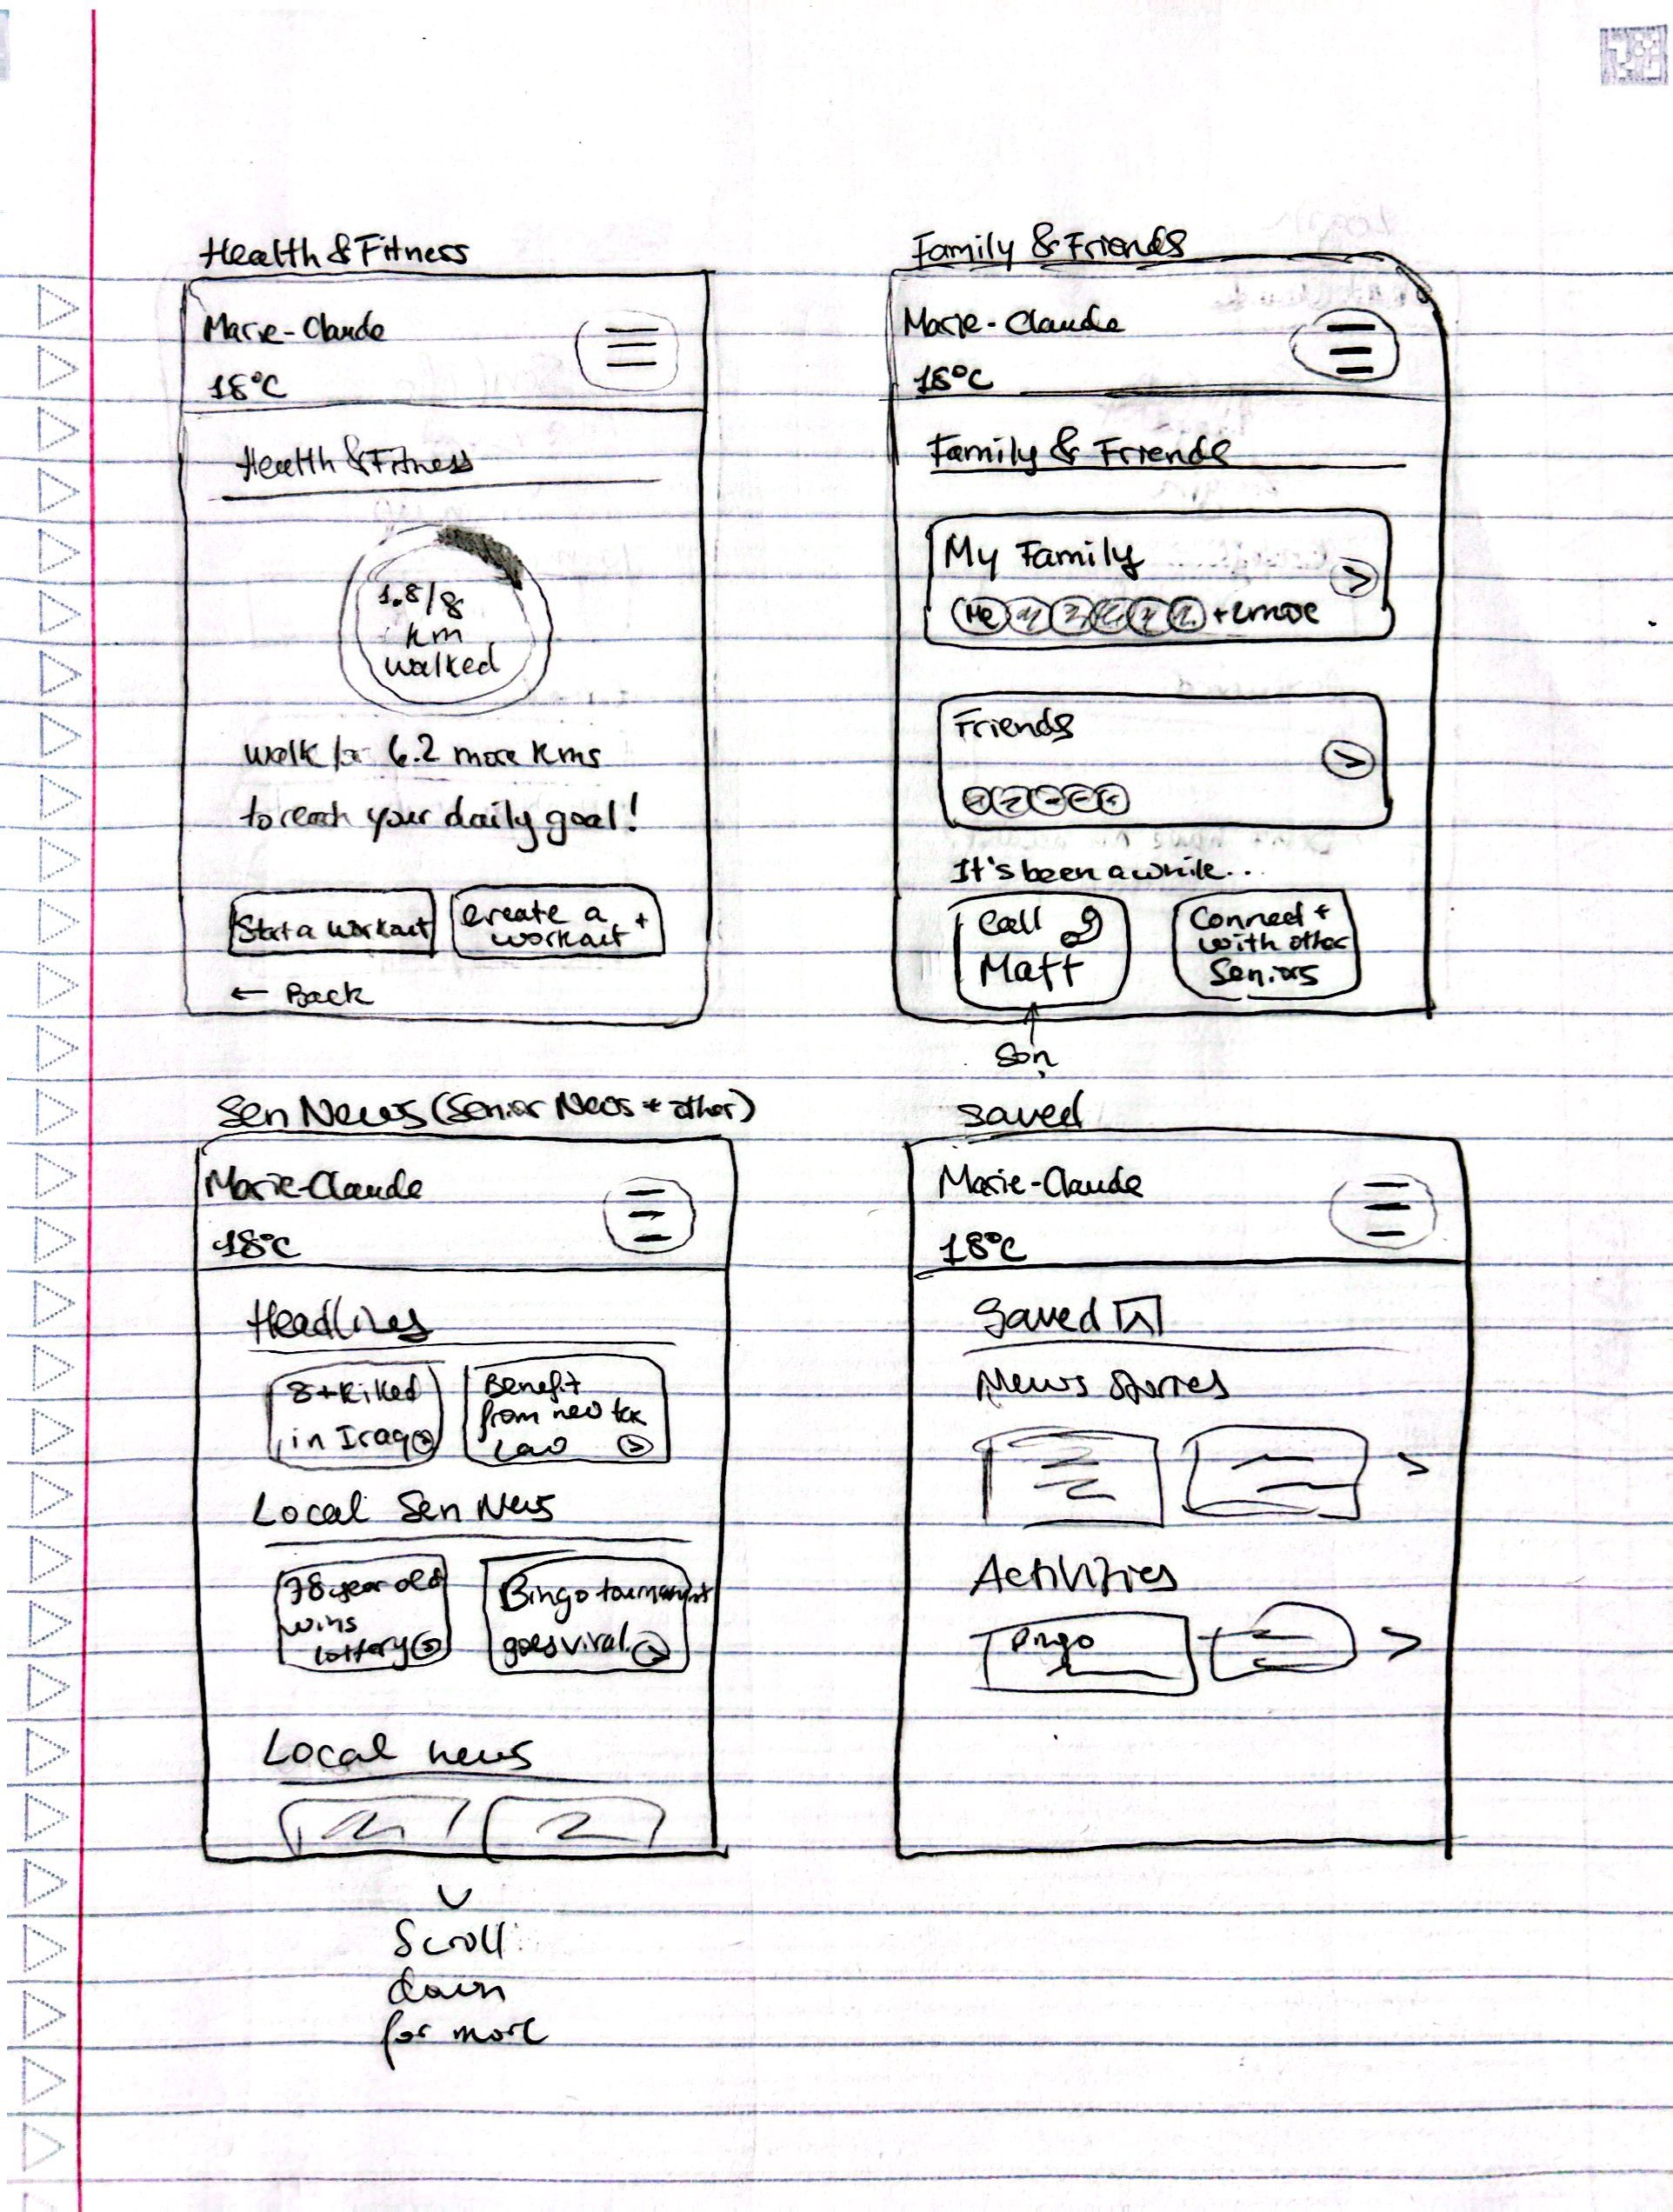 Health & Fitness
Marie-Claude
18°C
Health & Fitness
1.8/8
km
walked
walk for 6.2 more kms
to reach your daily goal!
Start a workout
Create a +
workout
← Back
Family & Friends
Marie-Claude
18°C
Family & Friends
My Family
>
Me
more
Friends
>
It's been a while...
Call
Matt
Connect +
with other
Seniors
Son
Sen News (Senior News + other)
Marie-Claude
18°C
Headlines
8+ killed
in Iraq >
Benefit
from new tax
Law >
Local Sen News
78 year old
wins
lottery >
Bingo tournament
goes viral >
Local news
Scroll
down
for more
Saved
Marie-Claude
18°C
Saved
News Stories
>
Activities
>